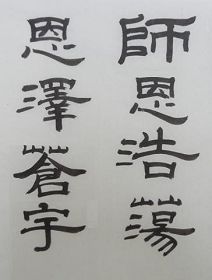 師恩浩蕩
恩澤蒼宇